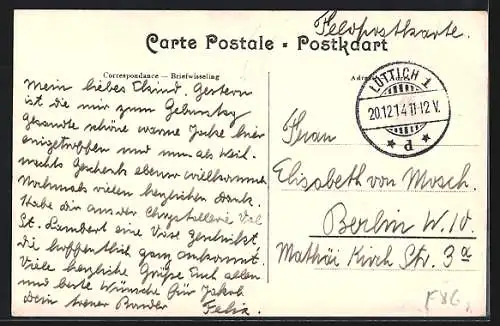 Feldpostkarte.
Carte Postale - Postkaart
Correspondance — Briefwisseling
LÜTTICH 1
20.12.14 11-12 V.
* d *
Mein liebes Kind. Gestern
ist die mir zum Geburtstag
gesandte schöne warme Jacke hier
eingetroffen und nun als Weih-
nachts Geschenk ebenso willkommen
Nochmals vielen herzlichen Dank.
Habe dir aus der Chrystallerie Val
St. Lambert eine Vase geschickt,
die hoffentlich ganz ankommt.
Viele herzliche Grüße Euch allen
und beste Wünsche für Jakob
Dein treuer Bruder
Felix.
Frau
Elisabeth von Mosch.
Berlin W. 10.
Mathäi Kirch Str. 3a